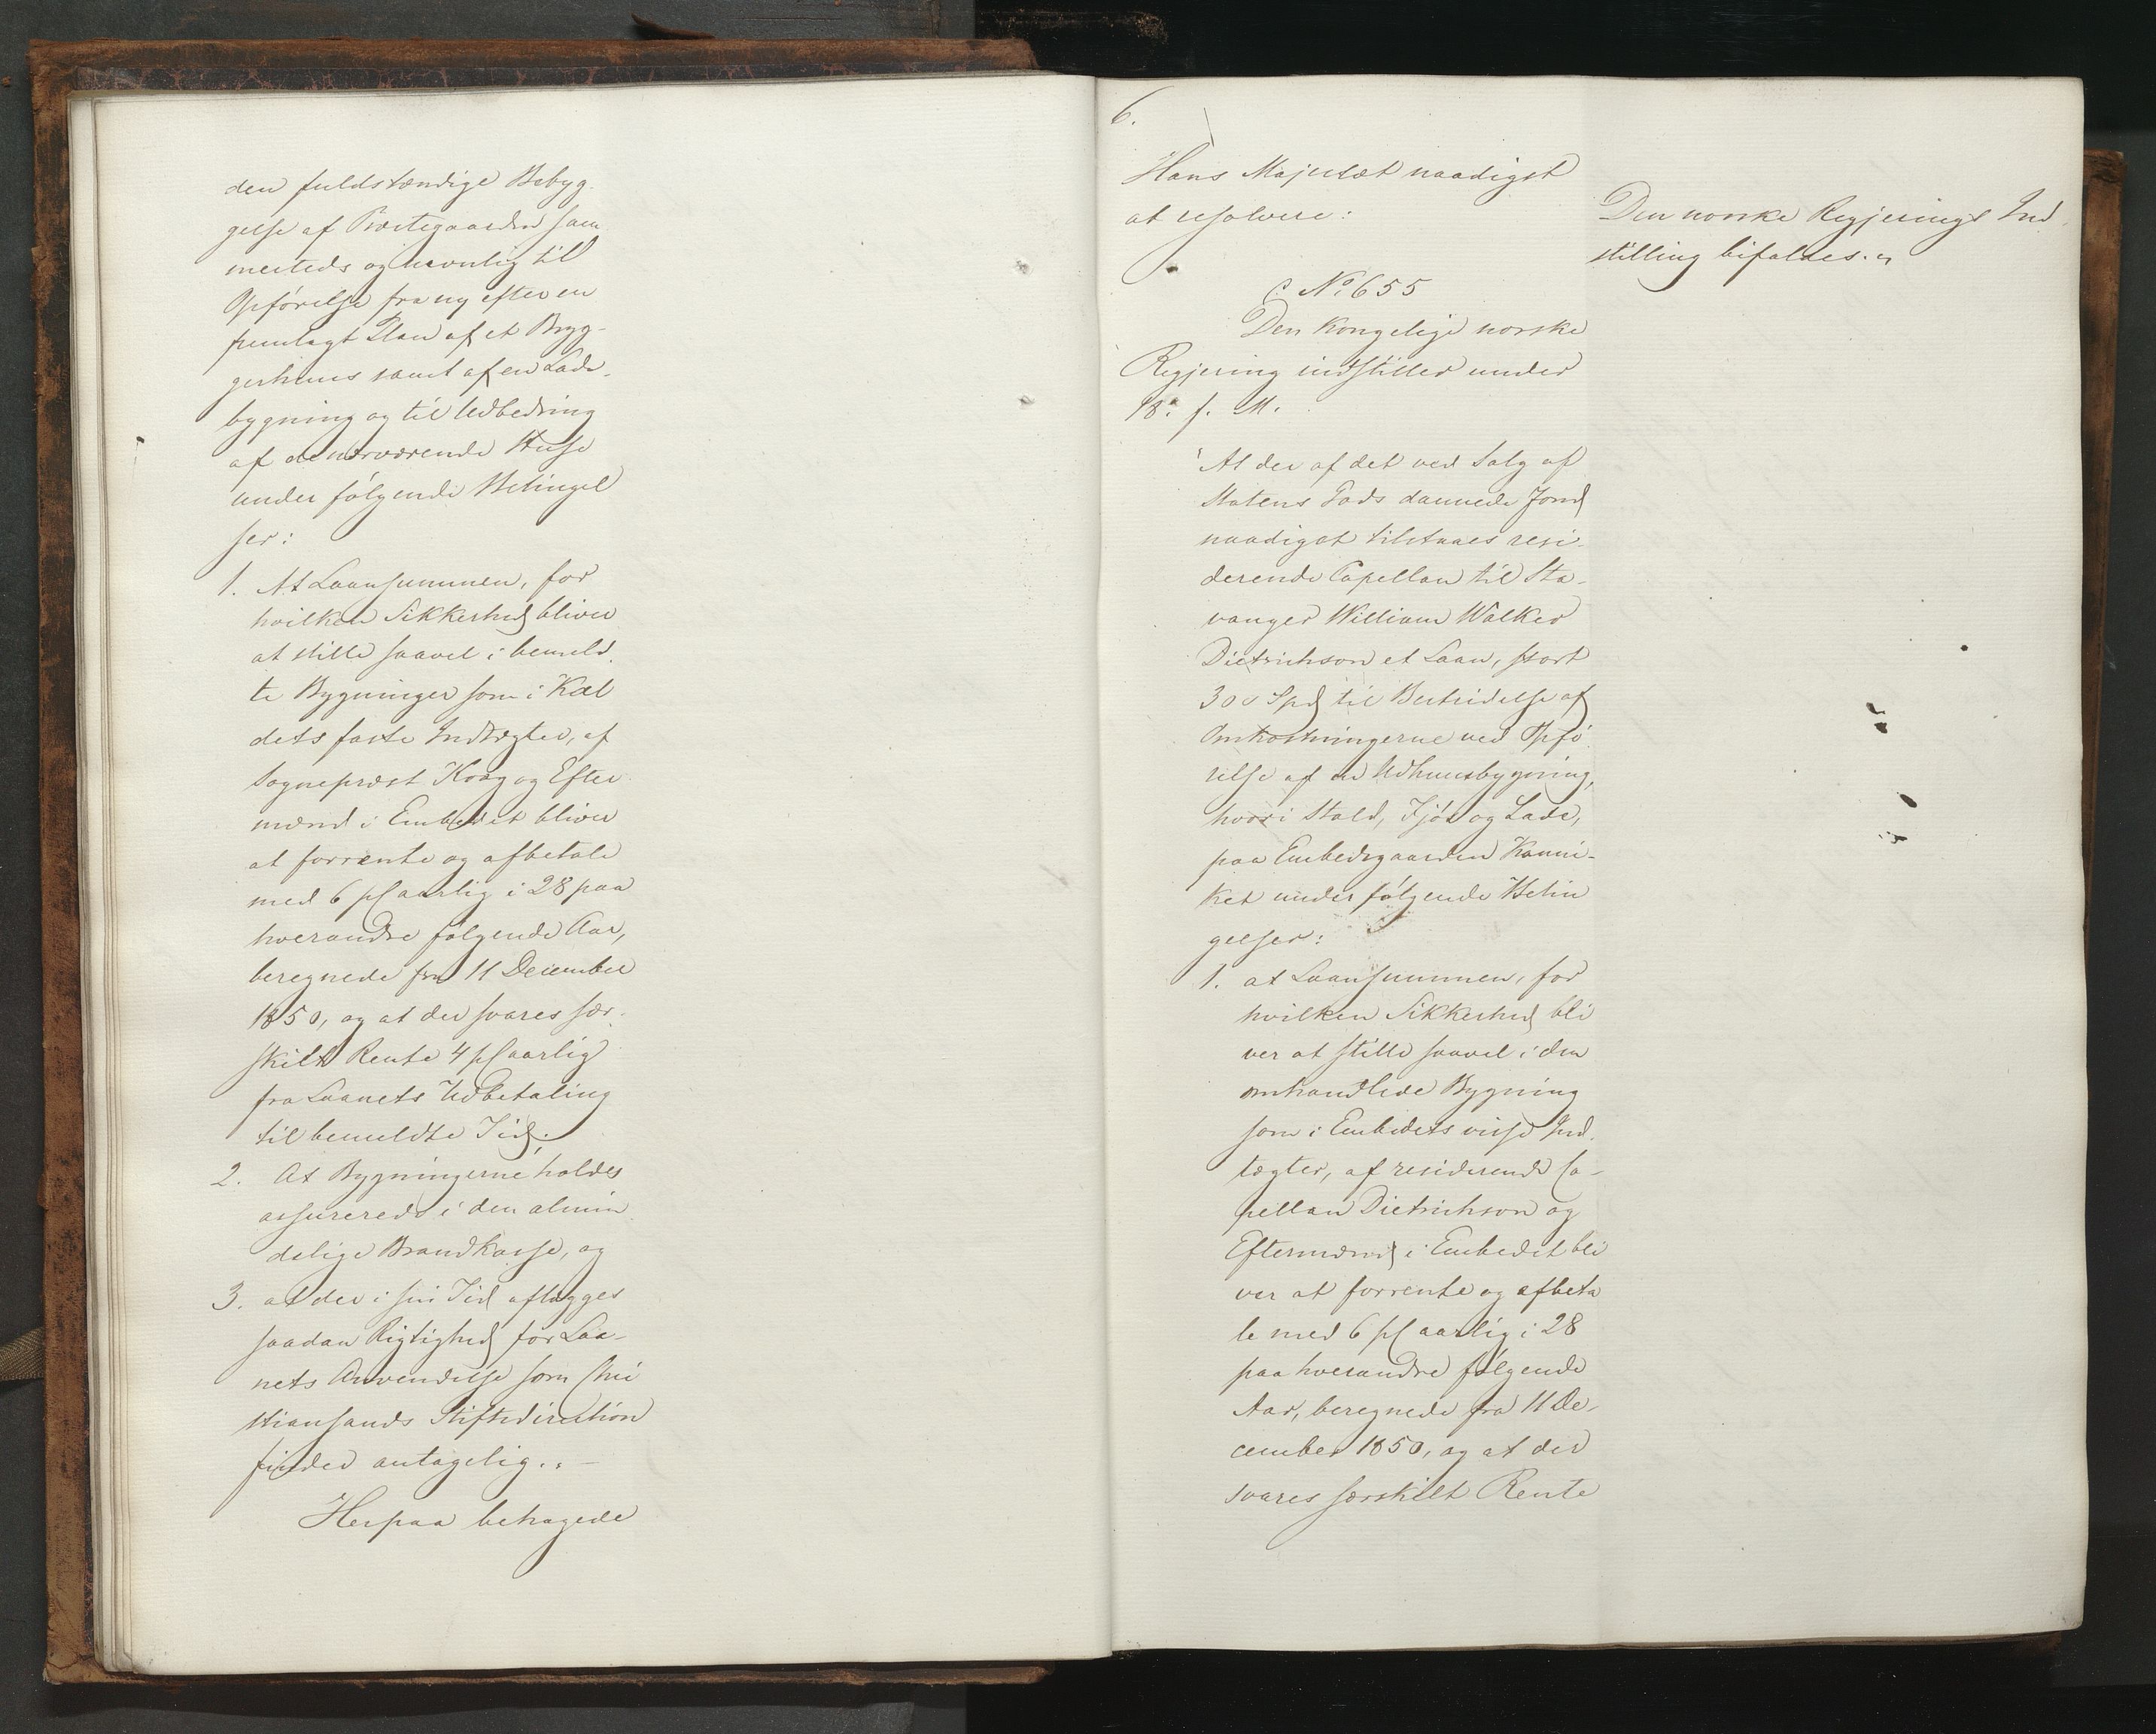 den fuldstændige Bebyg-
gelse af Præstegaarden sam-
mesteds og navnlig til
Opførelse fra ny efter en
fremlagt Plan af et Bryg-
gerhuus samt af en Lade-
bygning og til Udbedring
af de nærværende Huse
under følgende Betingel
ser:
1. At Laansummen, for
hvilken Sikkerhed bliver
at stille saavel i bemeld-
te Bygninger som i Kal
dets faste Indtægter, af
Sognepræst Krag og Efter
mænd i Embedet bliver
at forrente og afbetale
med 6 pC aarlig i 28 paa
hverandre følgende Aar,
beregnede fra 11 December
1850, og at der svares sær-
skilt Rente 4 pC aarlig
fra Laanets Udbetaling
til bemeldte Tid;
2. At Bygningerne holdes
assurerede i den almin-
delige Brandkasse, og
3. at der i sin Tid aflægges
saadan Rigtighed for Laa-
nets Anvendelse som Chri
stiansands Stiftsdirection
finder antagelig. –
Herpaa behagede
6.
Hans Majestæt naadigst
at resolvere:
Den norske Regjerings Ind-
stilling bifaldes.
No 655
Den Kongelige norske
Regjering indstiller under
18. f. M.
At der af det ved Salg af
Statens Gods dannede Fond
naadigst tilstaaes resi-
derende Capellan til Sta-
vanger William Walker
Dietrichson et Laan, stort
300 Spd til Bestridelse af
Omkostningerne ved Opfø-
relse af en Udhuusbygning,
hvori Stald, Fjøs og Lade,
paa Embedsgaarden Kanni-
ket under følgende Betin
gelser:
1. at Laansummen, for
hvilken Sikkerhed bli
ver at stille saavel i den
omhandlede Bygning
som i Embedets visse Ind-
tægter, af residerende Ca-
pellan Dietrichson og
Eftermænd i Embedet bli
ver at forrente og afbeta
le med 6 pC aarlig i 28
paa hverandre følgende
Aar, beregnede fra 11 De-
cember 1850, og at der
svares særskilt Rente